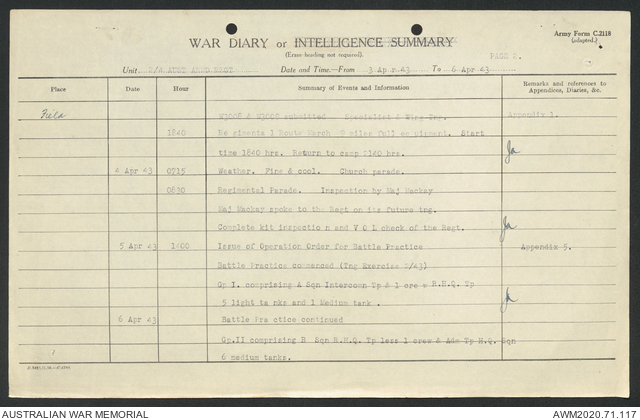 Army Form C.2118
(adapted.)
WAR DIARY or INTELLIGENCE SUMMARY
(Erase heading not required).
PAGE 2.
Unit AUST ARMD REGT Date and Time.—From 3 Apr.43 To 6 Apr 43
Place Date Hour Summary of Events and Information Remarks and references to Appendices, Diaries, &c.
Field submitted Specialist & Wing Tng. Appendix 1.
1840 Regiments 1 Route March 9 miles full equipment. Start
time 1840 hrs. Return to camp 2140 hrs.
4 Apr 43 0715 Weather. Fine & cool. Church parade.
0830 Regimental Parade. Inspection by Maj Mackay
Maj Mackay spoke to the Regt on its future tng.
Complete kit inspectio n and V O L check of the Regt.
5 Apr 43 1400 Issue of Operation Order for Battle Practice Appendix 5.
Battle Practice commenced (Tng Exercise 2/43)
Gp I. comprising A Sqn Intercomn Tp & 1 cre w R.H.Q. Tp
5 light ta nks and 1 Medium tank .
6 Apr 43 Battle Pra ctice continued
Gp.II comprising B Sqn R.H.Q. Tp less 1 crew & Adm Tp H.Q. Sqn
6 medium tanks.
AUSTRALIAN WAR MEMORIAL AWM2020.71.117